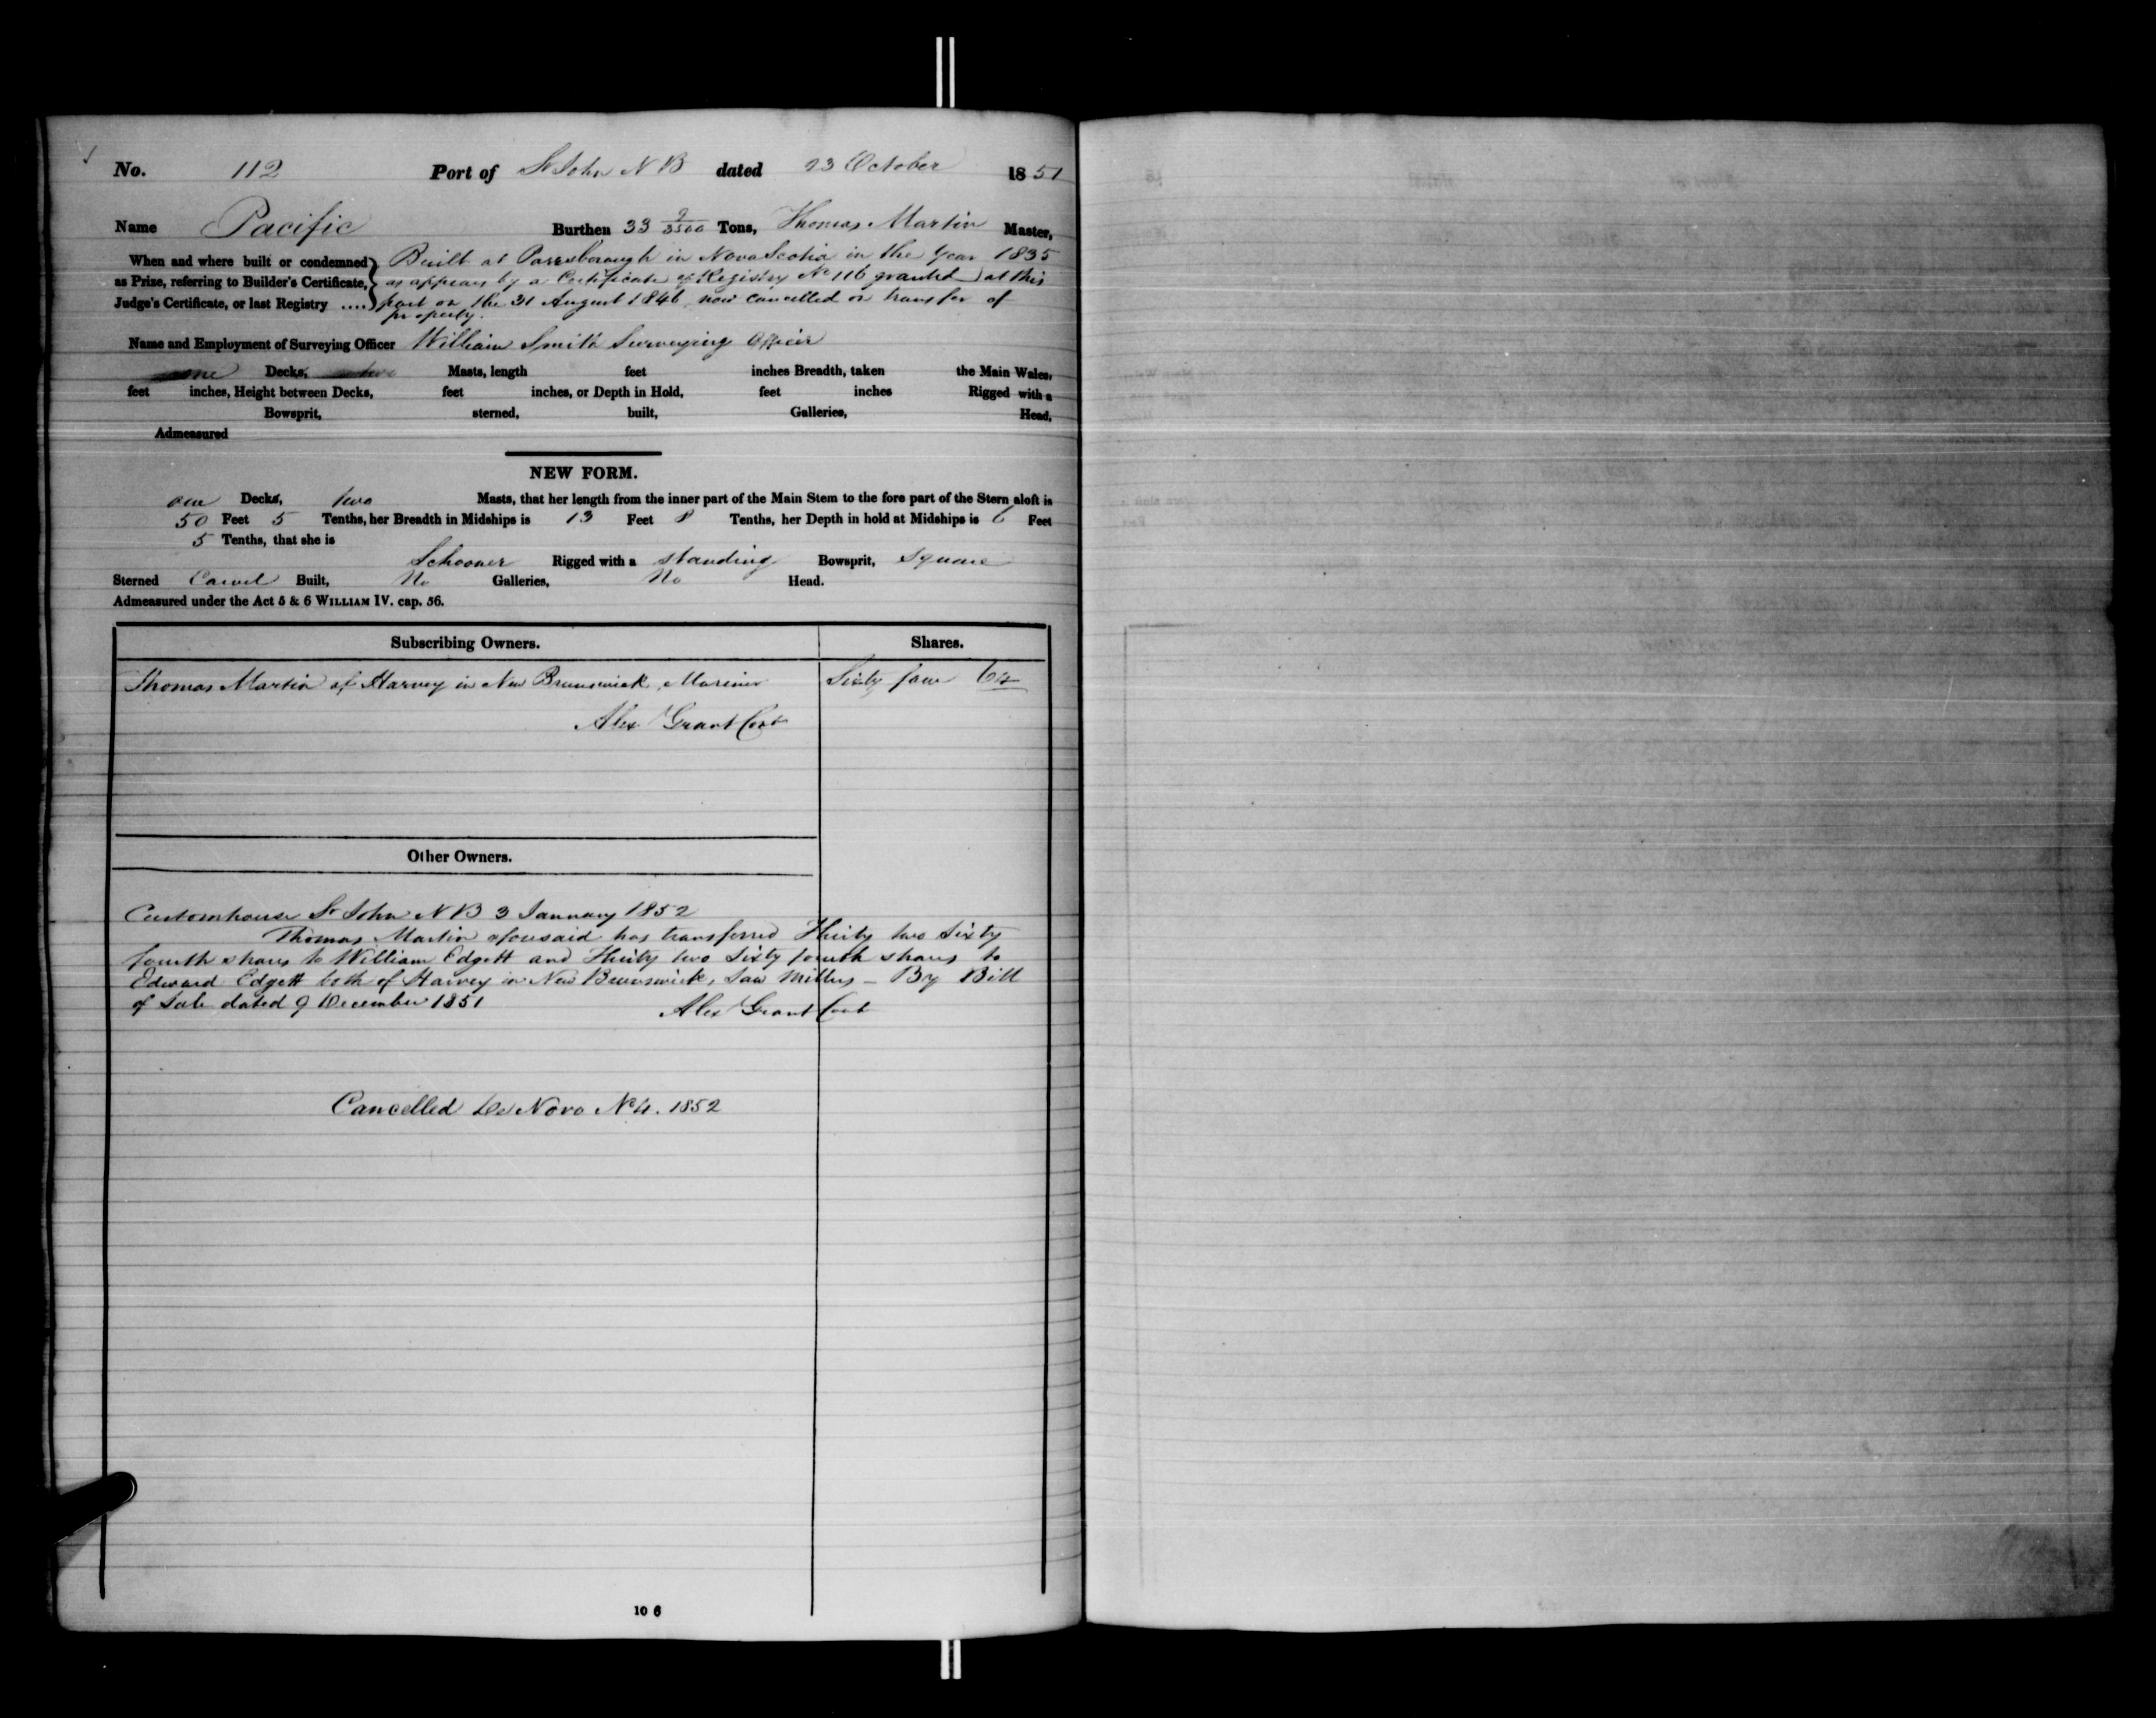 No. 112 Port of St John N B dated 23 October 1851
Name Pacific Burthen 33 2/3500 Tons, Thomas Martin Master,
When and where built or condemned Built at Parrsborough in Nova Scotia in the Year 1835
as Prize, referring to Builder's Certificate, as appears by a Certificate of Registry No 116 granted at this
Judge's Certificate, or last Registry .... port on the 31 August 1846 now cancelled on transfer of
property.
Name and Employment of Surveying Officer William Smith Surveying Officer
one Decks, two Masts, length feet inches Breadth, taken the Main Wales,
feet inches, Height between Decks, feet inches, or Depth in Hold, feet inches Rigged with a
Bowsprit, sterned, built, Galleries, Head.
Admeasured
NEW FORM.
one Decks, two Masts, that her length from the inner part of the Main Stem to the fore part of the Stern aloft is
50 Feet 5 Tenths, her Breadth in Midships is 13 Feet 8 Tenths, her Depth in hold at Midships is 6 Feet
5 Tenths, that she is
Schooner Rigged with a standing Bowsprit, Square
Sterned Carvel Built, No Galleries, No Head.
Admeasured under the Act 5 & 6 WILLIAM IV. cap. 56.
Subscribing Owners. Shares.
Thomas Martin of Harvey in New Brunswick, Mariner Sixty four 64
Alex Grant Cont
Other Owners.
Customhouse St John N B 3 January 1852
Thomas Martin aforesaid has transferred Thirty two Sixty
fourth shares to William Edgett and Thirty two Sixty fourth shares to
Edward Edgett both of Harvey in New Brunswick, Saw Millers - By Bill
of Sale dated 9 December 1851
Alex Grant Cont
Cancelled De Novo No 4. 1852
10 6